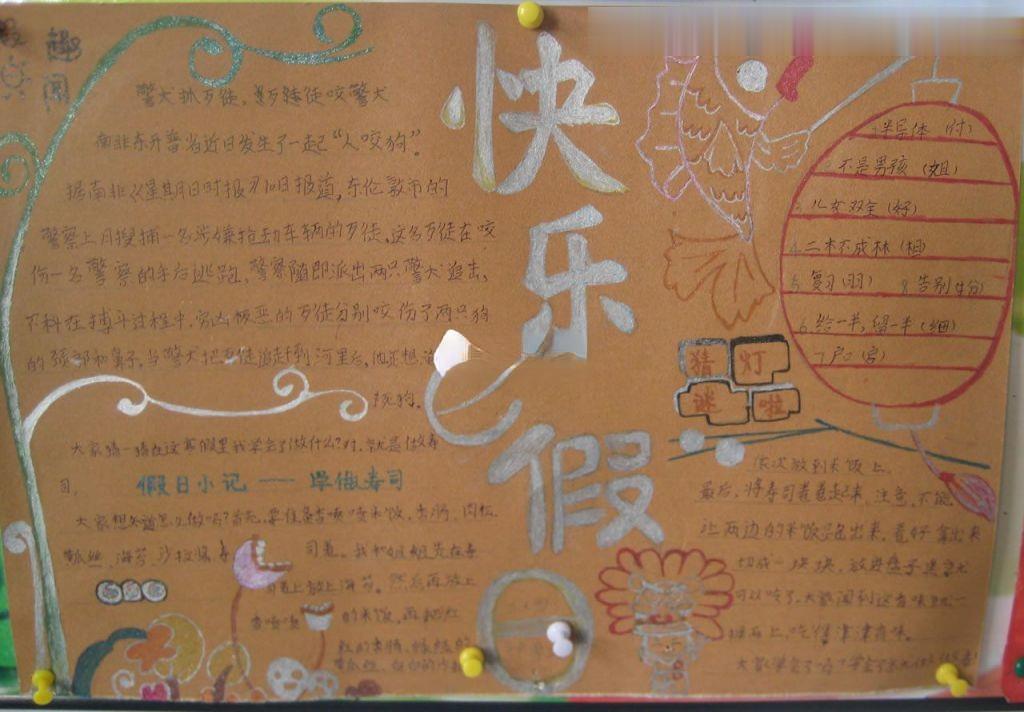 趣
闻
警犬抓歹徒,
徒咬警犬
南非东开普省近日发生了一起“人咬狗”。
据南非《星期日时报》10日报道,东伦敦市的
警察上月搜捕一名涉嫌抢劫车辆的歹徒,这名歹徒在咬
伤一名警察的手后逃跑,警察随即派出两只警犬追击,
不料在搏斗过程中,穷凶极恶的歹徒分别咬伤了两只狗
的颈部和鼻子,当警犬把歹徒追赶到河里后,他还想淹
死狗。
快
乐
假
半导体(付)
不是男孩(姐)
3.儿女双全(好)
4.二木不成林(相)
5.复习(羽)
8.告别(分)
6.给一半,留一半(细)
7户(房)
猜灯
谜啦
大家猜一猜在这寒假里我学会了做什么?对,就是做寿
司。
假日小记——学做寿司
大家想知道怎么做吗?首先,要准备香喷喷米饭,
黄瓜丝、海苔、沙拉酱、寿
司卷。我和姐姐先在寿
司卷上放上海苔。然后再放上
香喷喷
的米饭,再把红
依次放到米饭上。
最后,将寿司卷卷起来,注意,不能
让两边的米饭跑出来,卷好拿出来
切成一块块,放进盘子里就
可以吃了。大家闻到这香味就一
拥而上,吃得津津有味。
大家学会了吗?